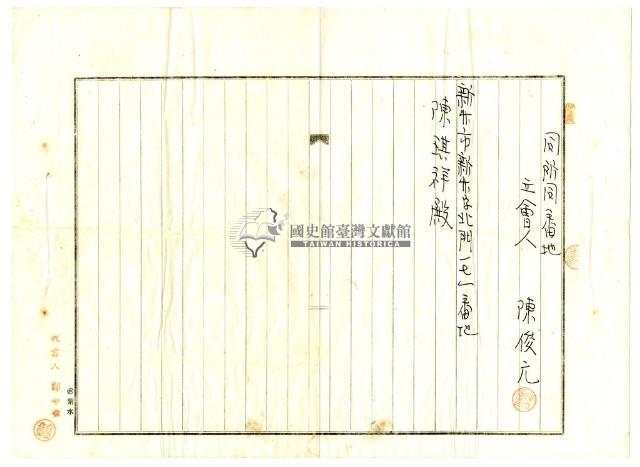 同所同番地
立會人 陳俊元
新竹市新竹字北門一七一番地
陳琪祥殿
國史館臺灣文獻館
TAIWAN HISTORICA